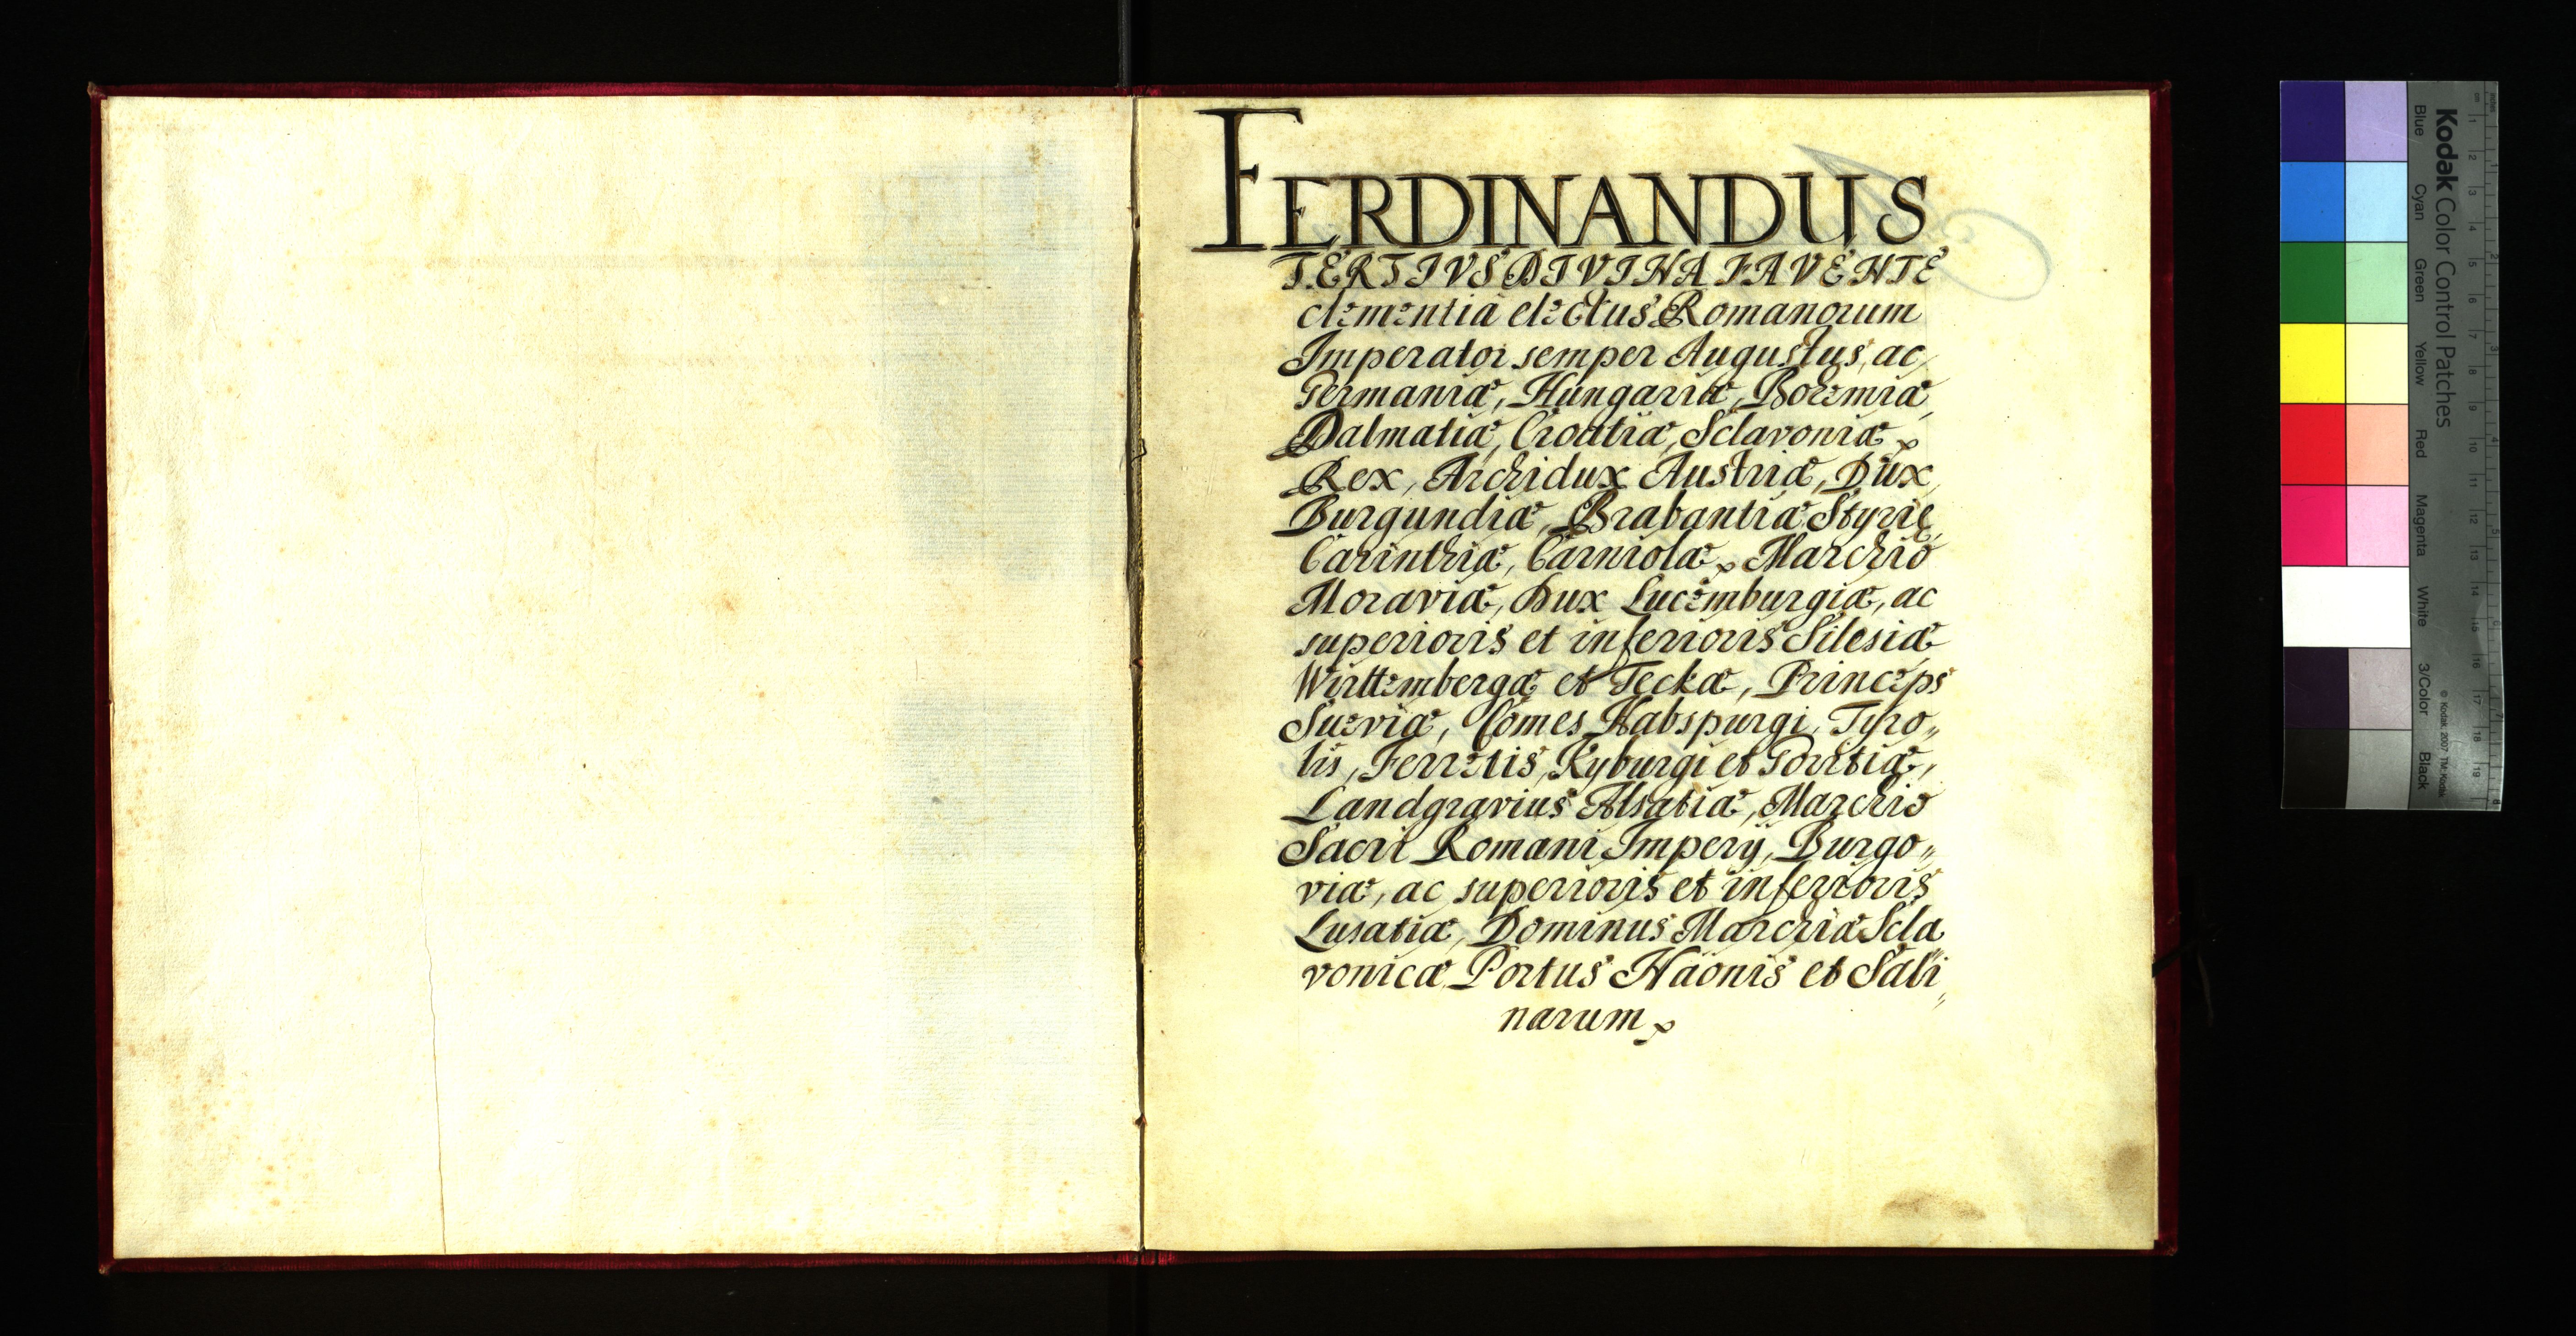 FERDINANDUS
TERTIVS DIVINA FAVENTE
clementia electus Romanorum
Imperator semper Augustus, ac
Germaniæ, Hungariæ, Boemiæ,
Dalmatiæ, Croatiæ, Sclavoniæ
Rex, Archidux Austriæ, Dux
Burgundiæ, Brabantiæ Styrię,
Carinthiæ, Carniolæ, Marchio
Moraviæ, Dux Lucemburgiæ, ac
superioris et inferioris Silesiæ
Wirttembergæ et Teckæ, Princeps
Sueviæ, Comes Habspurgi, Tyro„
lis, Ferretis, Kyburgi et Goritiæ,
Landgravius Alsatiæ, Marchio
Sacri Romani Imperij, Burgo„
viæ, ac superioris et inferioris
Lusatiæ, Dominus Marchiæ Scla„
vonicæ Portus Naonis et Sali„
narum
Kodak Color Control Patches
Blue Cyan Green Yellow Red Magenta White 3/Color Black
© Kodak, 2007 TM: Kodak
inches 1 2 3 4 5 6 7 8
cm 1 2 3 4 5 6 7 8 9 10 11 12 13 14 15 16 17 18 19